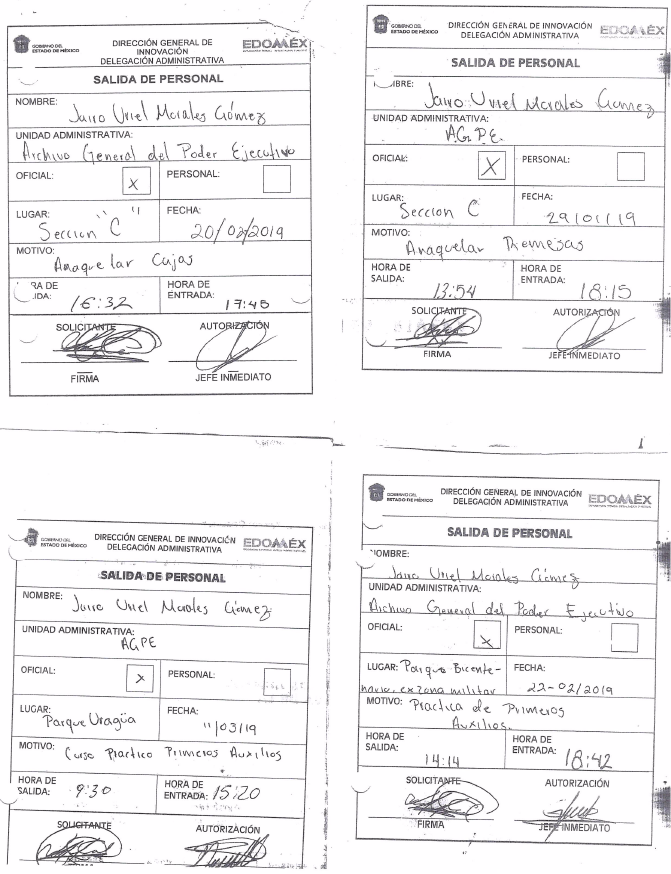 GOBIERNO DEL
ESTADO DE MÉXICO
DIRECCIÓN GENERAL DE
INNOVACIÓN
DELEGACIÓN ADMINISTRATIVA
EDOMÉX
SALIDA DE PERSONAL
NOMBRE: Jairo Uriel Morales Gómez
UNIDAD ADMINISTRATIVA:
Archivo General del Poder Ejecutivo
OFICIAL: X PERSONAL:
LUGAR: Seccion "C" FECHA: 20/02/2019
MOTIVO: Anaquelar Cajas
RA DE
IDA: 16:32 HORA DE
ENTRADA: 17:45
SOLICITANTE AUTORIZACIÓN
FIRMA JEFE INMEDIATO
GOBIERNO DEL
ESTADO DE MÉXICO
DIRECCIÓN GENERAL DE INNOVACIÓN
DELEGACIÓN ADMINISTRATIVA
EDOMÉX
SALIDA DE PERSONAL
IBRE: Jairo Uriel Morales Gómez
UNIDAD ADMINISTRATIVA:
A.G.P.E.
OFICIAL: X PERSONAL:
LUGAR: Seccion C FECHA: 29/01/19
MOTIVO: Anaquelar Remesas
HORA DE
SALIDA: 13:54 HORA DE
ENTRADA: 18:15
SOLICITANTE AUTORIZACIÓN
FIRMA JEFE INMEDIATO
GOBIERNO DEL
ESTADO DE MÉXICO
DIRECCIÓN GENERAL DE INNOVACIÓN
DELEGACIÓN ADMINISTRATIVA
EDOMÉX
SALIDA DE PERSONAL
NOMBRE: Jairo Uriel Morales Gómez
UNIDAD ADMINISTRATIVA:
AGPE
OFICIAL: X PERSONAL:
LUGAR: Parque FECHA: 11/03/19
MOTIVO: Curso Practico Primeros Auxilios
HORA DE
SALIDA: 9:30 HORA DE
ENTRADA: 15:20
SOLICITANTE AUTORIZACIÓN
GOBIERNO DEL
ESTADO DE MÉXICO
DIRECCIÓN GENERAL DE INNOVACIÓN
DELEGACIÓN ADMINISTRATIVA
EDOMÉX
SALIDA DE PERSONAL
NOMBRE:
Jairo Uriel Morales Gómez
UNIDAD ADMINISTRATIVA:
Archivo General del Poder Ejecutivo
OFICIAL: X PERSONAL:
LUGAR: Parque Bicente-
nario, exzona militar FECHA: 22-02/2019
MOTIVO: Practica de Primeros
Auxilios.
HORA DE
SALIDA: 14:14 HORA DE
ENTRADA: 18:42
SOLICITANTE AUTORIZACIÓN
FIRMA JEFE INMEDIATO